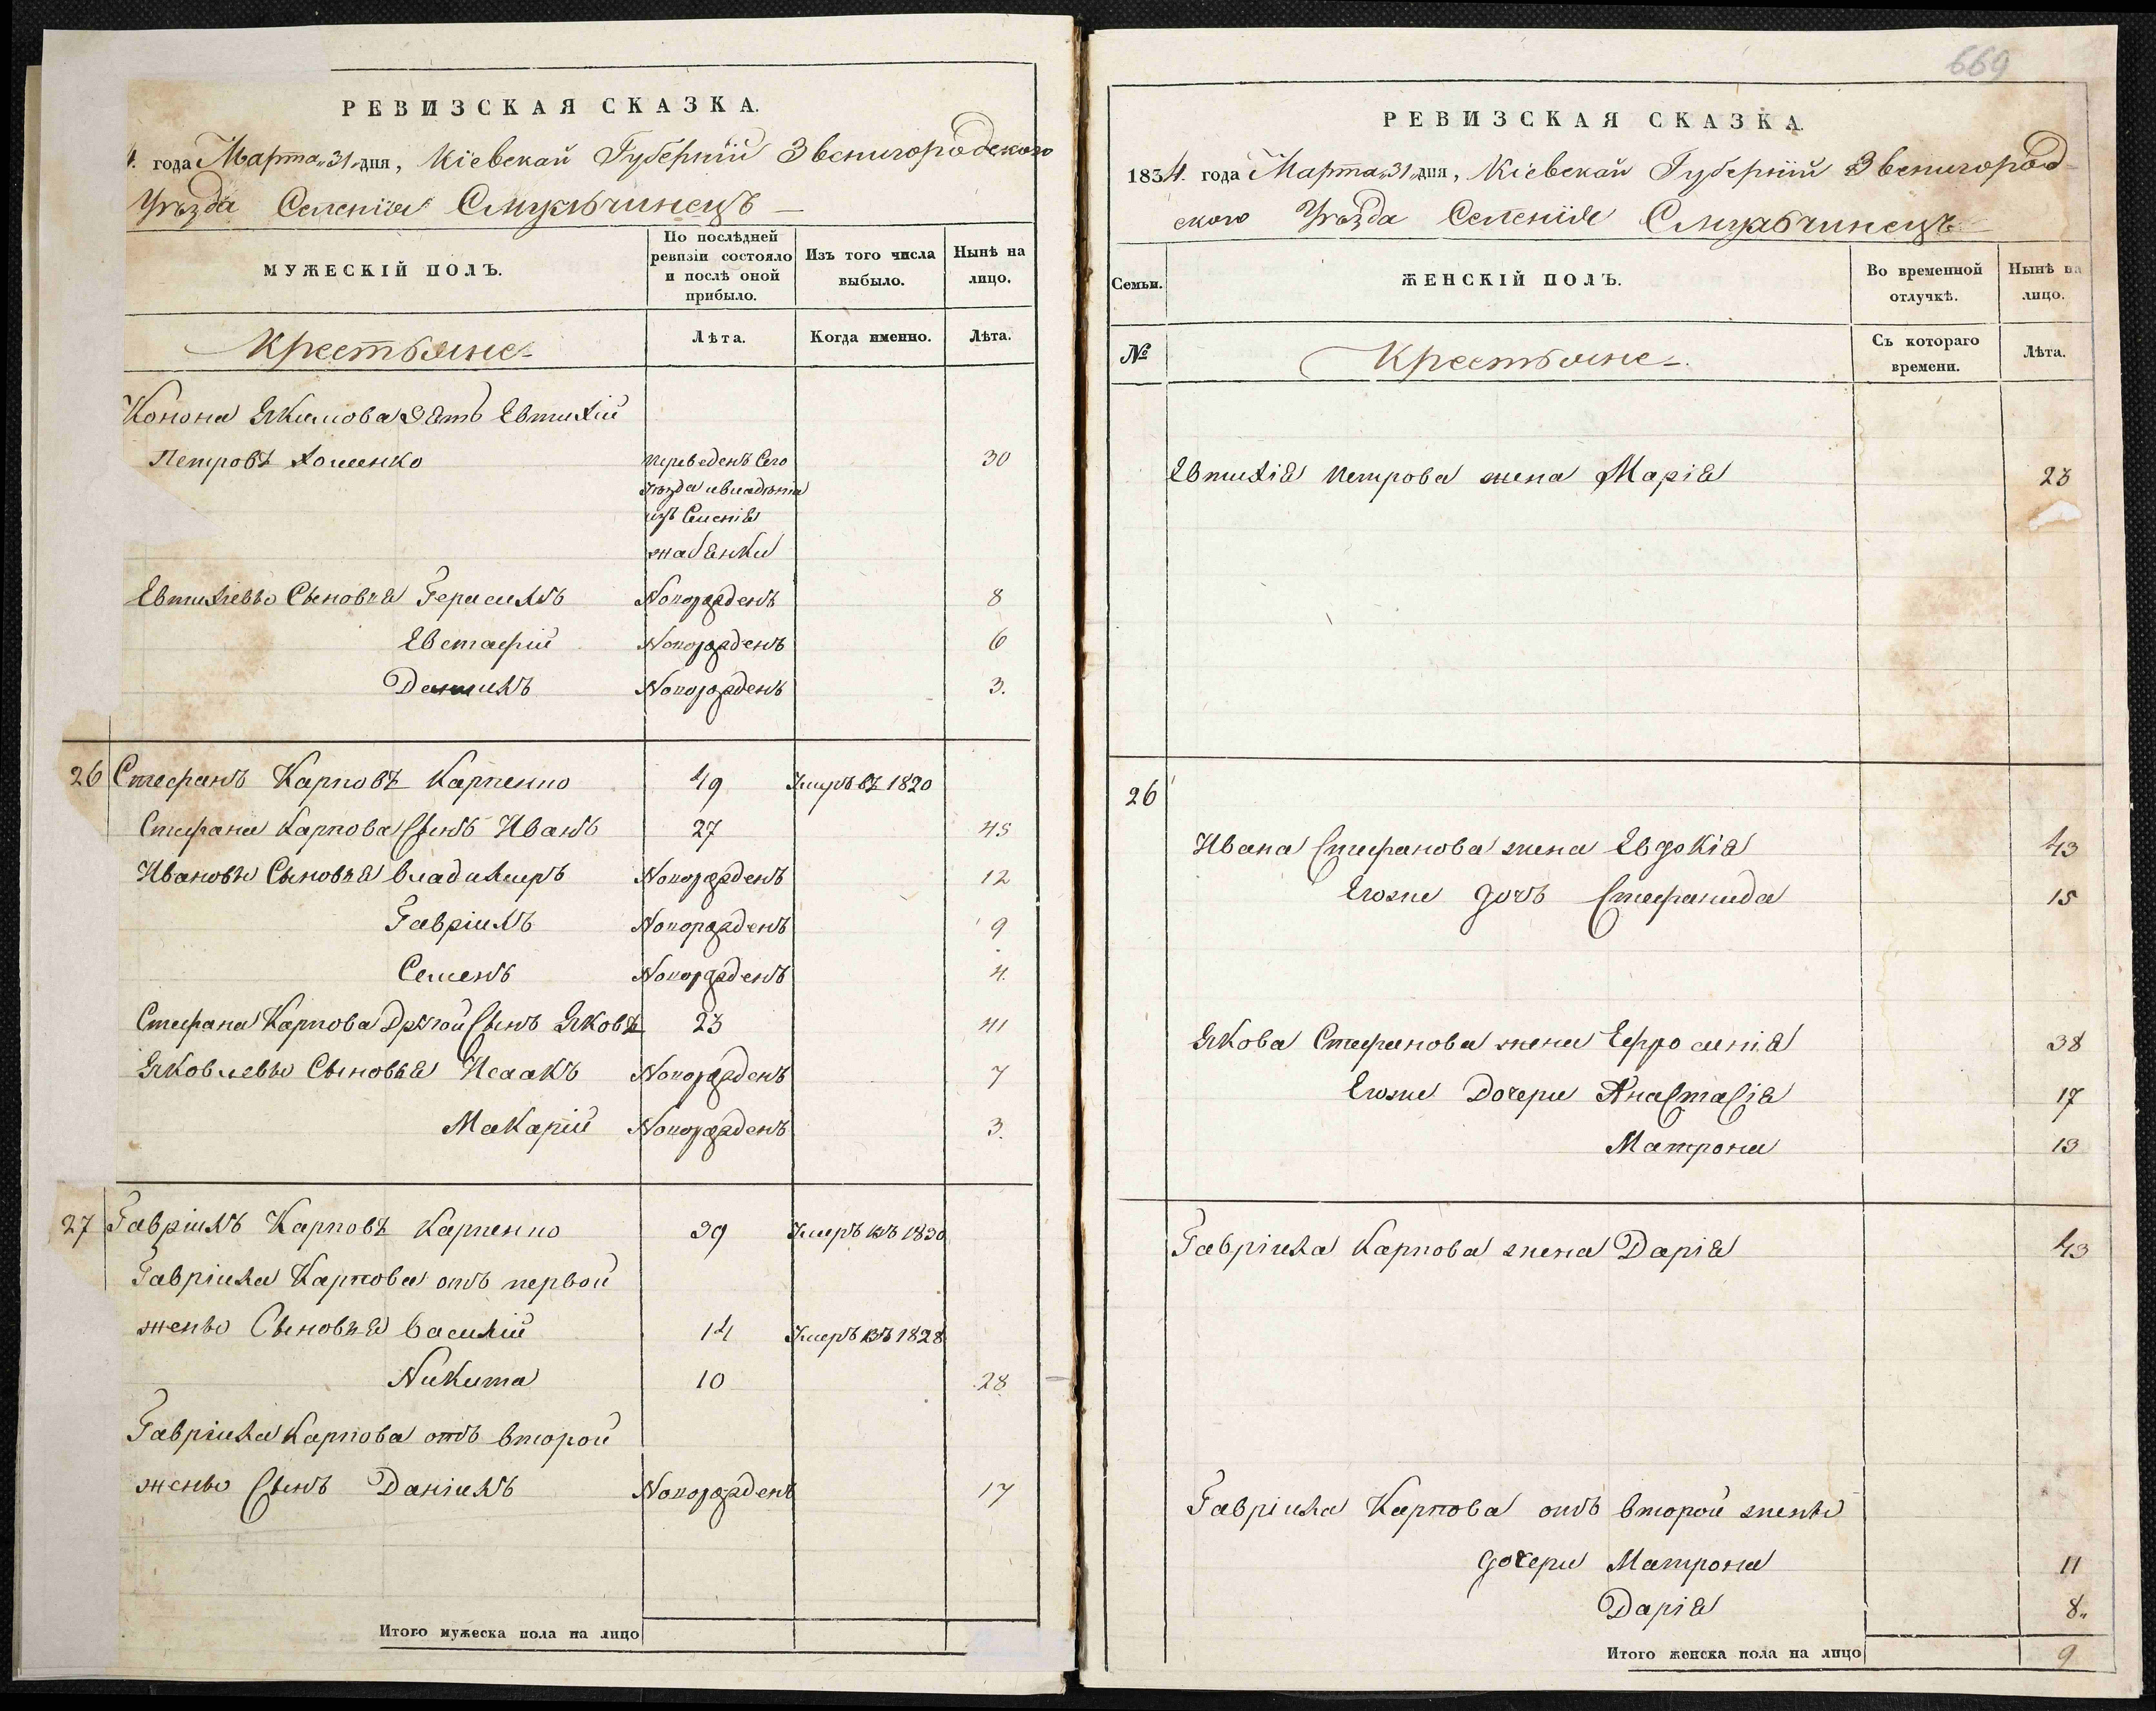 РЕВИЗСКАЯ СКАЗКА.
4. года Марта 31 дня, Кіевской Губерніи Звенигородского
Уѣзда Селенія Смульчинецъ
МУЖЕСКІЙ ПОЛЪ.
По послѣдней ревизіи состояло и послѣ оной прибыло.
Изъ того числа выбыло.
Нынѣ на лицо.
Крестьяне
Лѣта.
Когда именно.
Лѣта.
Конона Якимова Зять Евтихій
Петровъ Хоменко Переведенъ Сего 30
Уѣзда
изъ Селенія
Жабянки
Евтихіевы Сыновья Герасимъ Новорожденъ 8
Евстафій Новорожденъ 6
Даниилъ Новорожденъ 3.
26 Стефанъ Карповъ Карпенко 49 Умеръ въ 1820
Стефана Карпова Сынъ Иванъ 27 45
Ивановы Сыновья Владимиръ Новорожденъ 12
Гавріилъ Новорожденъ 9
Семенъ Новорожденъ 4.
Стефана Карпова Другой Сынъ Яковъ 23 41
Яковлевы Сыновья Исаакъ Новорожденъ 7
Макарій Новорожденъ 3.
27 Гавріилъ Карповъ Карпенко 39 Умеръ въ 1830
Гавріила Карпова отъ первой
жены Сыновья Василій 14 Умеръ въ 1828
Никита 10 28
Гавріила Карпова отъ второй
жены Сынъ Даніилъ Новорожденъ 17
Итого мужеска пола на лицо
669
РЕВИЗСКАЯ СКАЗКА.
1834. года Марта 31 дня, Кіевской Губерніи Звенигород
ского Уѣзда Селенія Смульчинецъ
Семьи.
ЖЕНСКІЙ ПОЛЪ.
Во временной отлучкѣ.
Нынѣ на лицо.
№
Крестьяне.
Съ котораго времени.
Лѣта.
Евтихія Петрова жена Марія 23
26
Ивана Стефанова жена Евдокія 43
Егоже дочь Стефанида 15
Якова Стефанова жена Ефросинія 38
Егоже Дочери Анастасія 17
Матрона 13
Гавріила Карпова жена Дарія 43
Гавріила Карпова отъ второй жены
дочери Матрона 11
Дарія 8
Итого женска пола на лицо 9